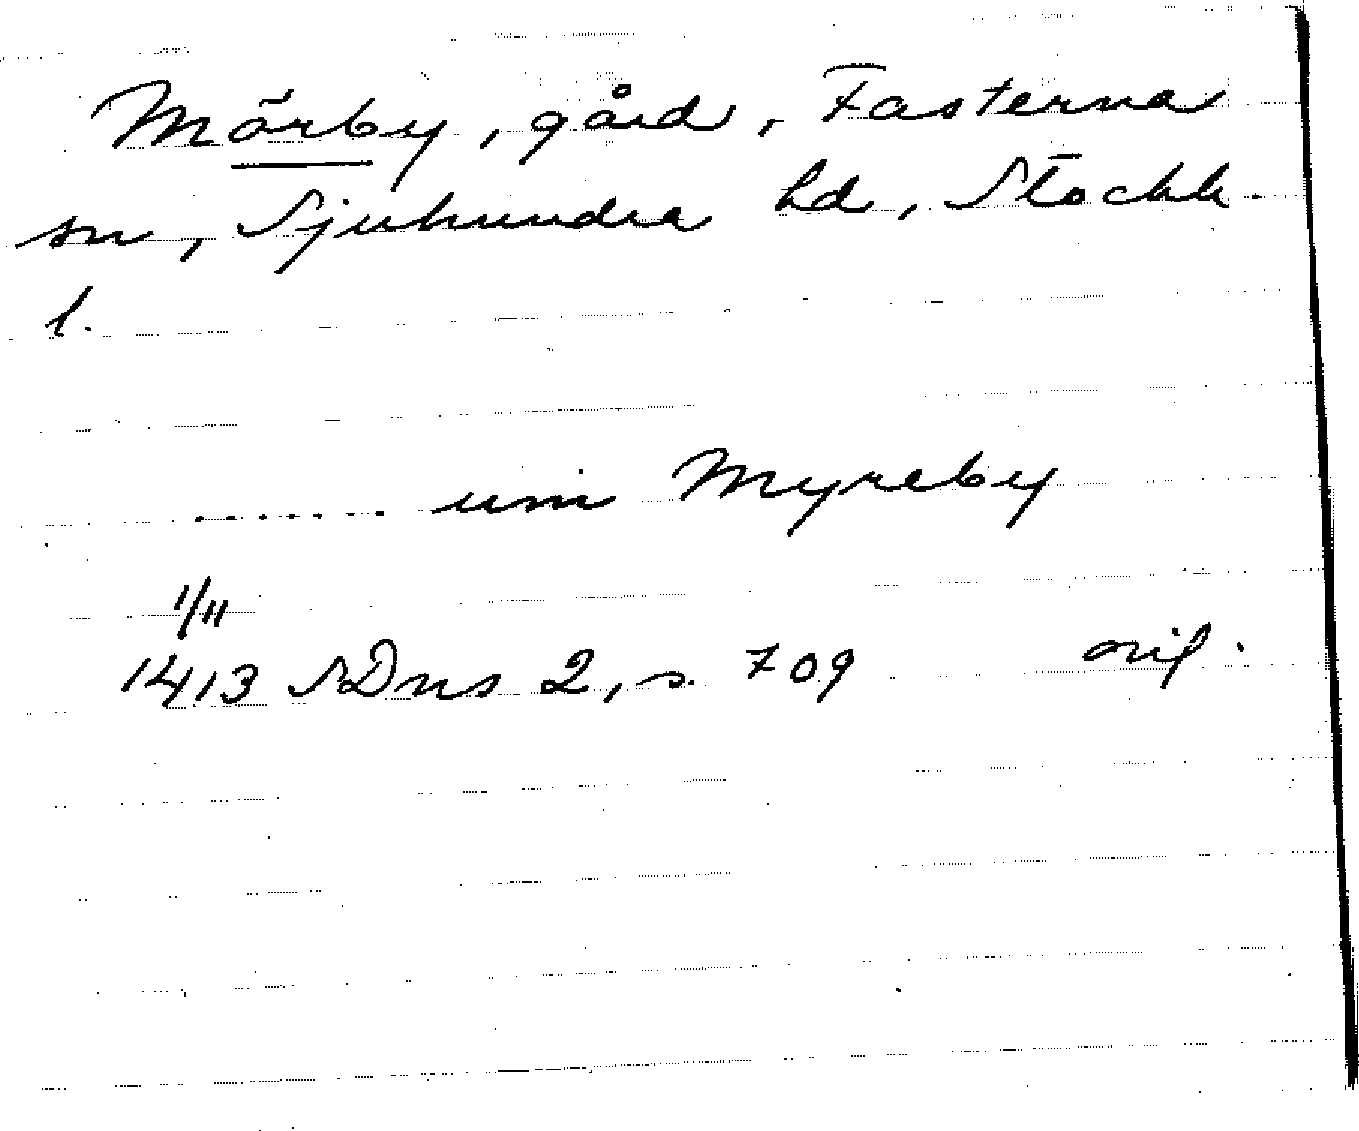 Mörby, gård, Fasterna
sn, Sjuhundra hd, Stockh.
l.
....... um Myreby
1/11
1413 SDns 2, s. 709 orig.